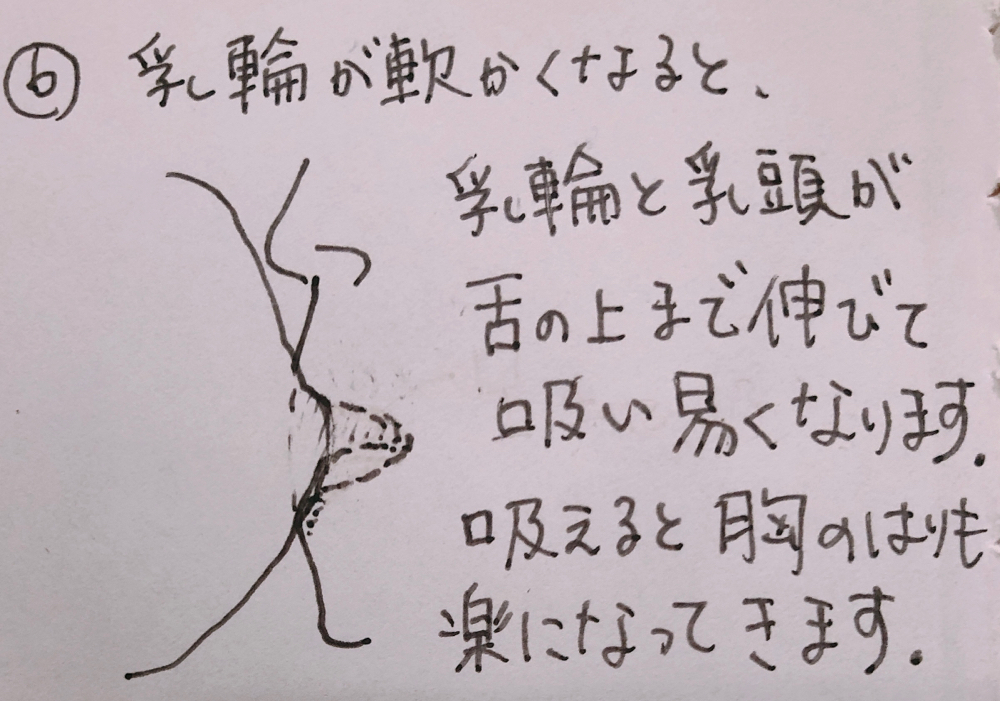 ⓑ 乳輪が軟かくなると、
乳輪と乳頭が
舌の上まで伸びて
吸い易くなります.
吸えると胸のはりも
楽になってきます.